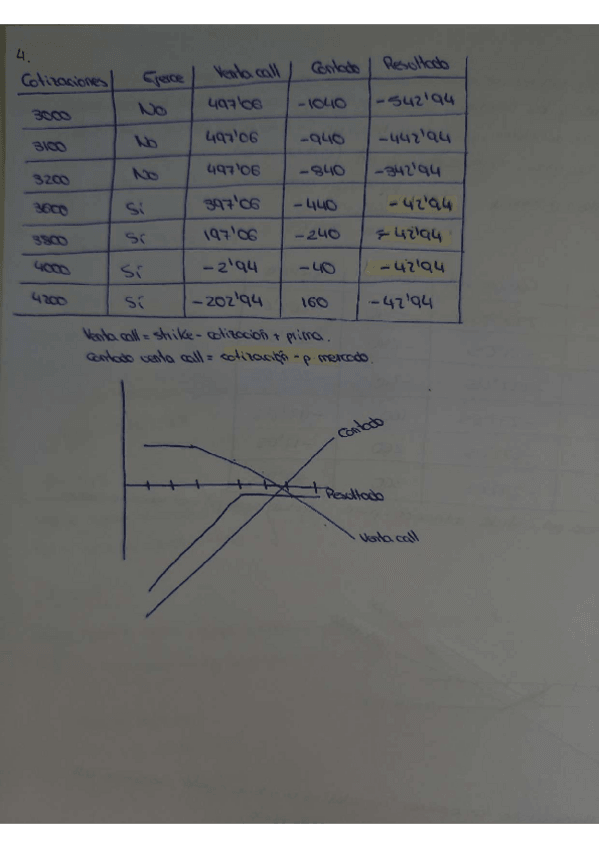 4.
Cotizaciones Ejerce Venta call Contado Resultado
3000 No 497'06 -1040 -542'94
3100 No 497'06 -940 -442'94
3200 No 497'06 -840 -342'94
3600 Sí 397'06 -440 -42'94
3800 Sí 197'06 -240 -42'94
4000 Sí -2'94 -40 -42'94
4200 Sí -202'94 160 -42'94
Venta call = strike - cotización + prima.
Contado venta call = cotización - p mercado.
Contado
Resultado
Venta call